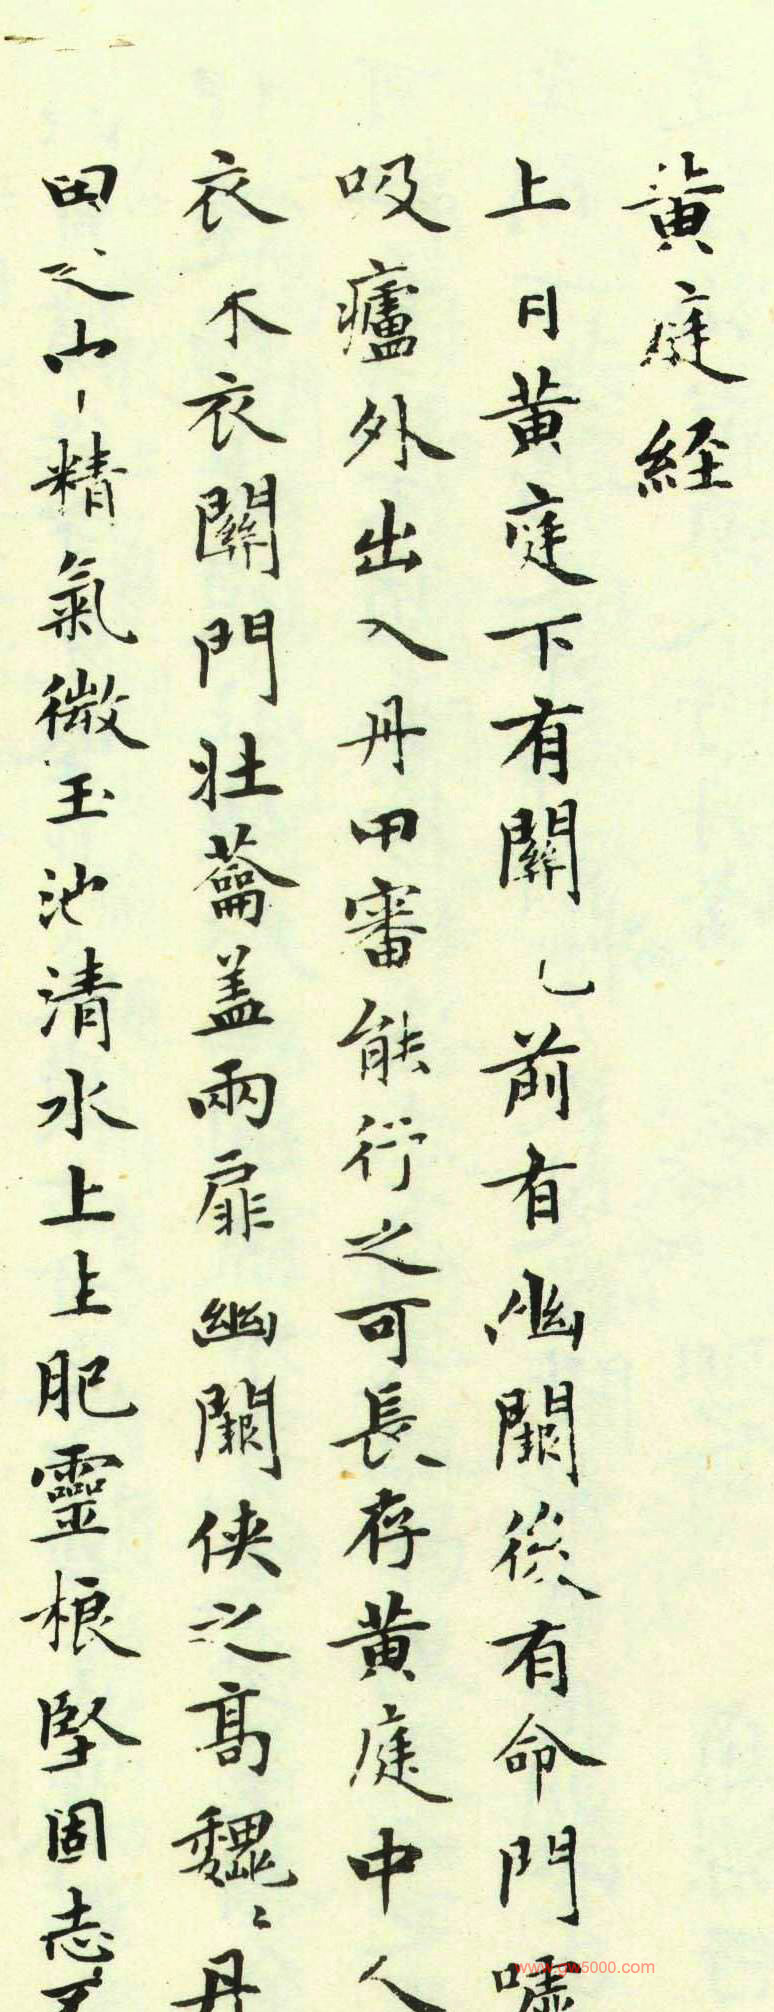 黄庭経
上日黄庭下有關前有幽闕後有命門嘘
吸廬外出入丹田審能行之可長存黄庭中人
衣朱衣關門壮蘥盖兩扉幽闕侠之高巍〻丹
田之中精氣微玉池清水上生肥靈根堅固志不
www.gw5000.com